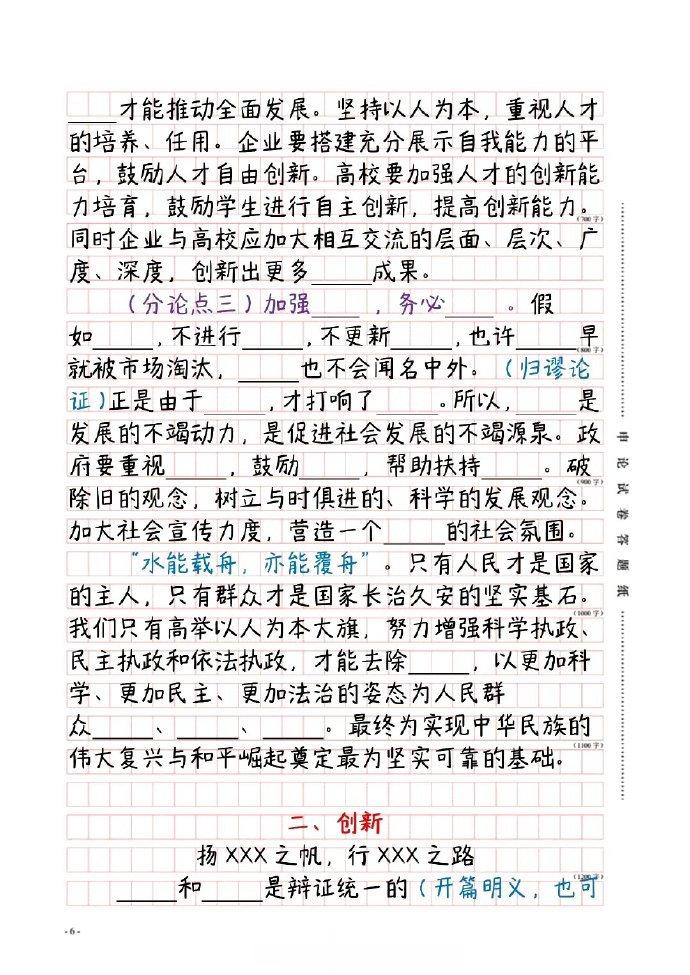 _____才能推动全面发展。坚持以人为本，重视人才
的培养、任用。企业要搭建充分展示自我能力的平
台，鼓励人才自由创新。高校要加强人才的创新能
力培育，鼓励学生进行自主创新，提高创新能力。
（700 字）
同时企业与高校应加大相互交流的层面、层次、广
度、深度，创新出更多______成果。
（分论点三）加强_____，务必_____。假
如______,不进行______,不更新______,也许______早
（800 字）
就被市场淘汰，______也不会闻名中外。（归谬论
证)正是由于______,才打响了______。所以,______是
发展的不竭动力，是促进社会发展的不竭源泉。政
府要重视______，鼓励______，帮助扶持______。破
（900 字）
除旧的观念，树立与时俱进的、科学的发展观念。
加大社会宣传力度，营造一个______的社会氛围。
“水能载舟，亦能覆舟”。只有人民才是国家
的主人，只有群众才是国家长治久安的坚实基石。
（1000 字）
我们只有高举以人为本大旗，努力增强科学执政、
民主执政和依法执政，才能去除______，以更加科
学、更加民主、更加法治的姿态为人民群
众______、______、______。最终为实现中华民族的
伟大复兴与和平崛起奠定最为坚实可靠的基础。
（1100 字）
二、创新
扬 XXX 之帆，行 XXX 之路
______和______是辩证统一的（开篇明义，也可
（1200 字）
申论试卷答题纸
- 6 -